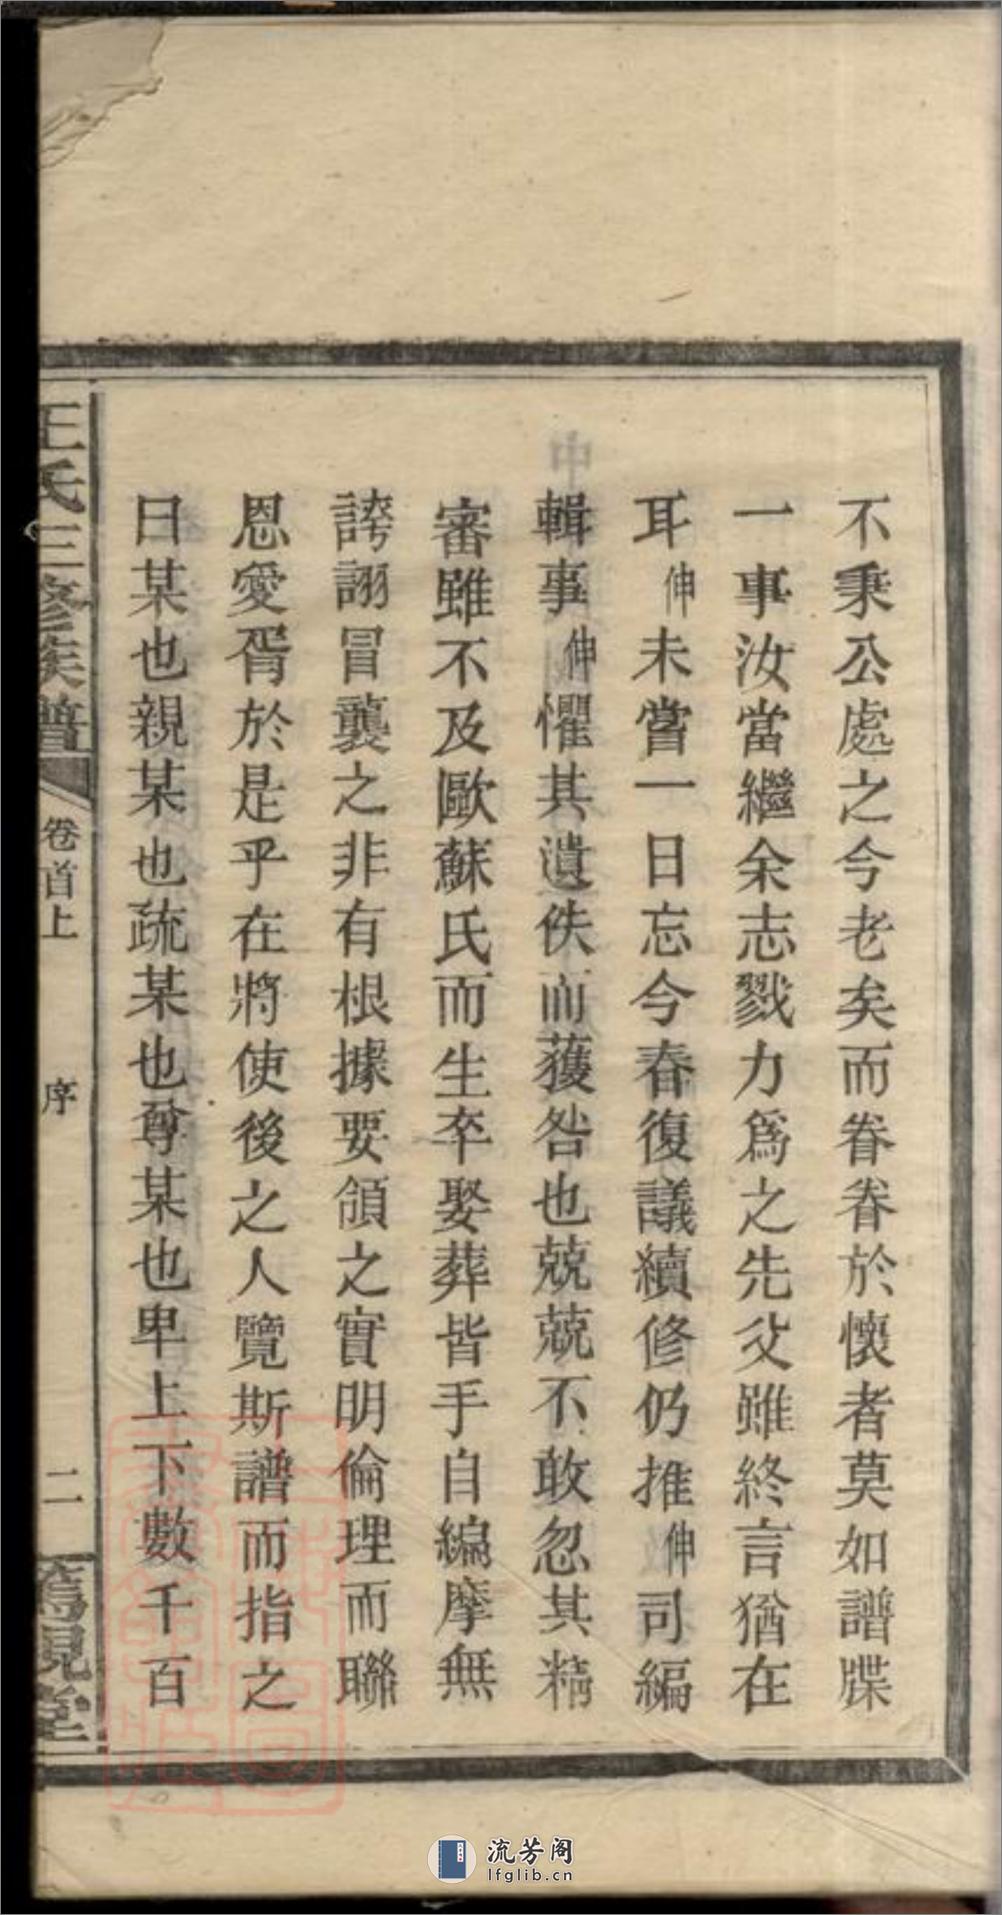 不秉公處之今老矣而眷眷於懷者莫如譜牒
一事汝當繼余志戮力爲之先父雖終言猶在
耳伸未嘗一日忘今春復議續修仍推伸司編
輯事伸懼其遺佚而獲咎也兢兢不敢忽其精
審雖不及歐蘇氏而生卒娶葬皆手自編摩無
誇詡冒襲之非有根據要領之實明倫理而聯
恩愛胥於是乎在將使後之人覽斯譜而指之
曰某也親某也疏某也尊某也卑上下數千百
王氏三修族譜
卷首上
序
二
篤親堂
流芳阁
lfglib.cn